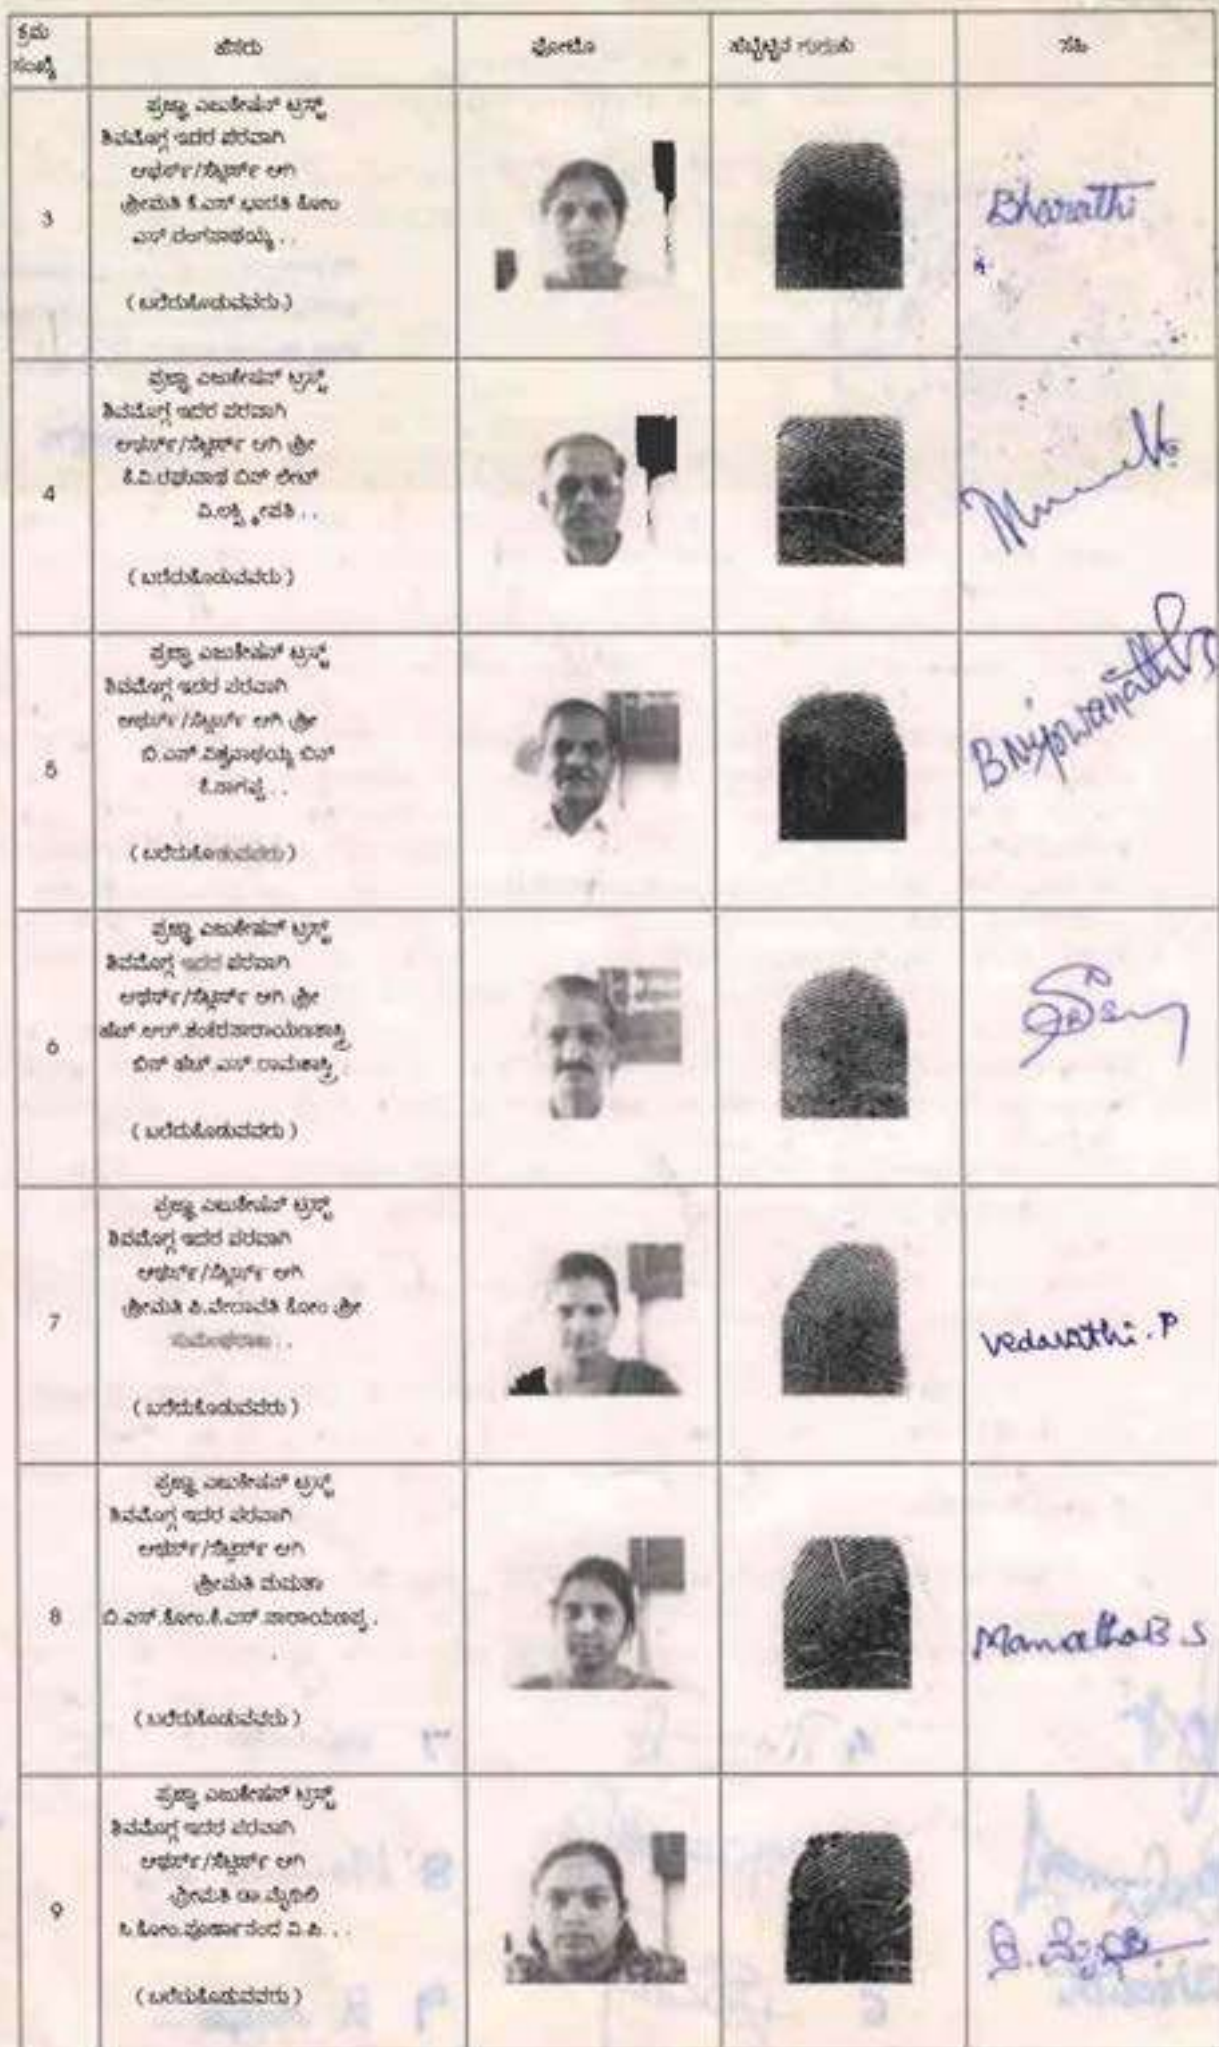 ಕ್ರಮ ಸಂಖ್ಯೆ
ಹೆಸರು
ಫೋಟೊ
ಹೆಬ್ಬೆಟ್ಟಿನ ಗುರುತು
ಸಹಿ
3
ಪ್ರಜ್ಞಾ ಎಜುಕೇಷನ್ ಟ್ರಸ್ಟ್
ಶಿವಮೊಗ್ಗ ಇದರ ಪರವಾಗಿ
ಆಥರ್ಸ್/ಸೆಟ್ಲರ್ಸ್ ಆಗಿ
ಶ್ರೀಮತಿ ಕೆ.ಎಸ್ ಭಾರತಿ ಕೋಂ
ಎಸ್.ರಂಗನಾಥಯ್ಯ . .
( ಬರೆದುಕೊಡುವವರು )
Bharathi
4
ಪ್ರಜ್ಞಾ ಎಜುಕೇಷನ್ ಟ್ರಸ್ಟ್
ಶಿವಮೊಗ್ಗ ಇದರ ಪರವಾಗಿ
ಆಥರ್ಸ್/ಸೆಟ್ಲರ್ಸ್ ಆಗಿ ಶ್ರೀ
ಕೆ.ವಿ.ರಘುನಾಥ ಬಿನ್ ಲೇಟ್
ವಿ.ಲಕ್ಷ್ಮೀಪತಿ . .
( ಬರೆದುಕೊಡುವವರು )
5
ಪ್ರಜ್ಞಾ ಎಜುಕೇಷನ್ ಟ್ರಸ್ಟ್
ಶಿವಮೊಗ್ಗ ಇದರ ಪರವಾಗಿ
ಆಥರ್ಸ್/ಸೆಟ್ಲರ್ಸ್ ಆಗಿ ಶ್ರೀ
ಬಿ.ಎನ್.ವಿಶ್ವನಾಥಯ್ಯ ಬಿನ್
ಕೆ.ನಾಗಪ್ಪ . .
( ಬರೆದುಕೊಡುವವರು )
6
ಪ್ರಜ್ಞಾ ಎಜುಕೇಷನ್ ಟ್ರಸ್ಟ್
ಶಿವಮೊಗ್ಗ ಇದರ ಪರವಾಗಿ
ಆಥರ್ಸ್/ಸೆಟ್ಲರ್ಸ್ ಆಗಿ ಶ್ರೀ
ಹೆಚ್.ಆರ್.ಶಂಕರನಾರಾಯಣಶಾಸ್ತ್ರಿ
ಬಿನ್ ಹೆಚ್.ಎಸ್.ರಾಮಶಾಸ್ತ್ರಿ .
( ಬರೆದುಕೊಡುವವರು )
7
ಪ್ರಜ್ಞಾ ಎಜುಕೇಷನ್ ಟ್ರಸ್ಟ್
ಶಿವಮೊಗ್ಗ ಇದರ ಪರವಾಗಿ
ಆಥರ್ಸ್/ಸೆಟ್ಲರ್ಸ್ ಆಗಿ
ಶ್ರೀಮತಿ ಪಿ.ವೇದಾವತಿ ಕೋಂ ಶ್ರೀ
( ಬರೆದುಕೊಡುವವರು )
Vedavathi . P
8
ಪ್ರಜ್ಞಾ ಎಜುಕೇಷನ್ ಟ್ರಸ್ಟ್
ಶಿವಮೊಗ್ಗ ಇದರ ಪರವಾಗಿ
ಆಥರ್ಸ್/ಸೆಟ್ಲರ್ಸ್ ಆಗಿ
ಶ್ರೀಮತಿ ಮಮತಾ
ಬಿ.ಎಸ್.ಕೋಂ.ಕೆ.ಎಸ್.ನಾರಾಯಣಪ್ಪ .
( ಬರೆದುಕೊಡುವವರು )
Mamatha B S
9
ಪ್ರಜ್ಞಾ ಎಜುಕೇಷನ್ ಟ್ರಸ್ಟ್
ಶಿವಮೊಗ್ಗ ಇದರ ಪರವಾಗಿ
ಆಥರ್ಸ್/ಸೆಟ್ಲರ್ಸ್ ಆಗಿ
ಶ್ರೀಮತಿ ಡಾ.ಮೈಥಿಲಿ
ಸಿ.ಕೋಂ.ಪೂರ್ಣಾನಂದ ವಿ.ಪಿ. . .
( ಬರೆದುಕೊಡುವವರು )